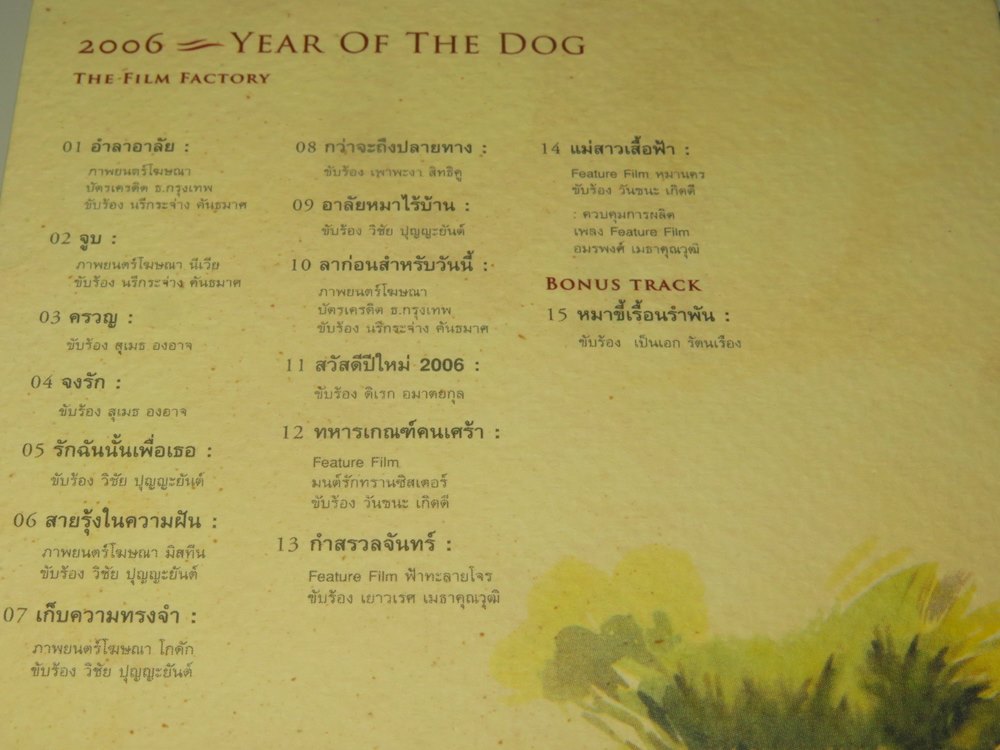 2006 YEAR OF THE DOG
THE FILM FACTORY
01 อำลาอาลัย :
ภาพยนตร์โฆษณา
บัตรเครดิต ธ.กรุงเทพ
ขับร้อง นรีกระจ่าง คันธมาศ
02 จูบ :
ภาพยนตร์โฆษณา นีเวีย
ขับร้อง นรีกระจ่าง คันธมาศ
03 ครวญ :
ขับร้อง สุเมธ องอาจ
04 จงรัก :
ขับร้อง สุเมธ องอาจ
05 รักฉันนั้นเพื่อเธอ :
ขับร้อง วิชัย ปุญญะยันต์
06 สายรุ้งในความฝัน :
ภาพยนตร์โฆษณา มิสทีน
ขับร้อง วิชัย ปุญญะยันต์
07 เก็บความทรงจำ :
ภาพยนตร์โฆษณา โกดัก
ขับร้อง วิชัย ปุญญะยันต์
08 กว่าจะถึงปลายทาง :
ขับร้อง เพาพะงา สิทธิคู
09 อาลัยหมาไร้บ้าน :
ขับร้อง วิชัย ปุญญะยันต์
10 ลาก่อนสำหรับวันนี้ :
ภาพยนตร์โฆษณา
บัตรเครดิต ธ.กรุงเทพ
ขับร้อง นรีกระจ่าง คันธมาศ
11 สวัสดีปีใหม่ 2006 :
ขับร้อง ดิเรก อมาตยกุล
12 ทหารเกณฑ์คนเศร้า :
Feature Film
มนต์รักทรานซิสเตอร์
ขับร้อง วันชนะ เกิดดี
13 กำสรวลจันทร์ :
Feature Film ฟ้าทะลายโจร
ขับร้อง เยาวเรศ เมธาคุณวุฒิ
14 แม่สาวเสื้อฟ้า :
Feature Film หมานคร
ขับร้อง วันชนะ เกิดดี
: ควบคุมการผลิต
เพลง Feature Film
อมรพงศ์ เมธาคุณวุฒิ
BONUS TRACK
15 หมาขี้เรื้อนรำพัน :
ขับร้อง เป็นเอก รัตนเรือง